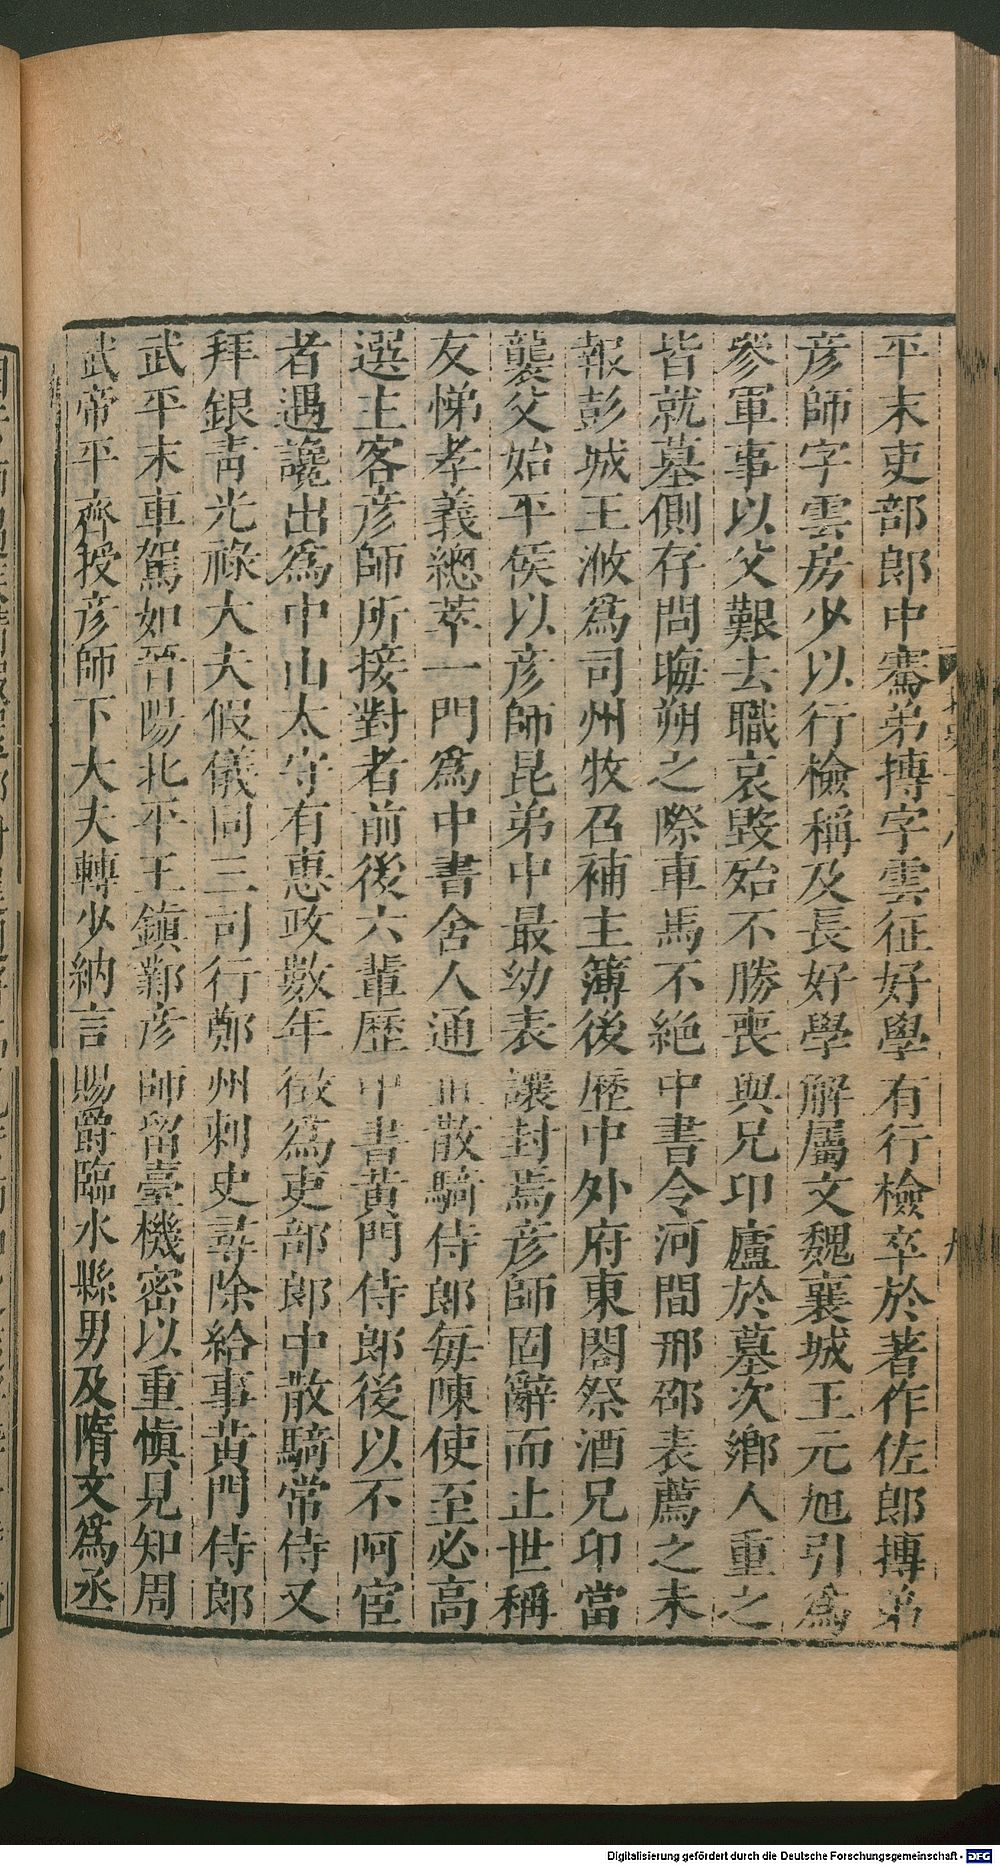 平末吏部郎中騫弟摶字雲征好學有行檢卒於著作佐郎摶弟
彦師字雲房少以行檢稱及長好學解屬文魏襄城王元旭引爲
參軍事以父艱去職哀毀殆不勝喪與兄卬廬於墓次鄉人重之
皆就墓側存問晦朔之際車馬不絶中書令河間邢邵表薦之未
報彭城王浟爲司州牧召補主簿後歷中外府東閤祭酒兄卬當
襲父始平侯以彦師昆弟中最幼表讓封焉彦師固辭而止世稱
友悌孝義總萃一門爲中書舍人通直散騎侍郎每陳使至必高
選主客彦師所接對者前後六輩歷中書黃門侍郎後以不阿宦
者遇讒出爲中山太守有惠政數年徵爲吏部郎中散騎常侍又
拜銀青光祿大夫假儀同三司行鄭州刺史尋除給事黃門侍郎
武平末車駕如晉陽北平王鎮鄴彦師留臺機密以重慎見知周
武帝平齊授彦師下大夫轉少納言賜爵臨水縣男及隋文爲丞
Digitalisierung gefördert durch die Deutsche Forschungsgemeinschaft - DFG